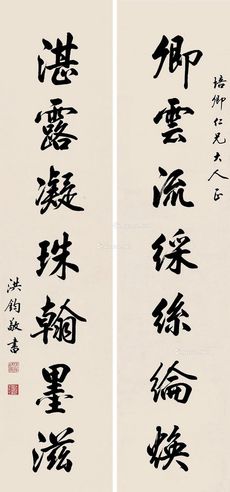 培卿仁兄大人正
卿雲流綵絲綸煥
湛露凝珠翰墨滋
洪鈞敬書